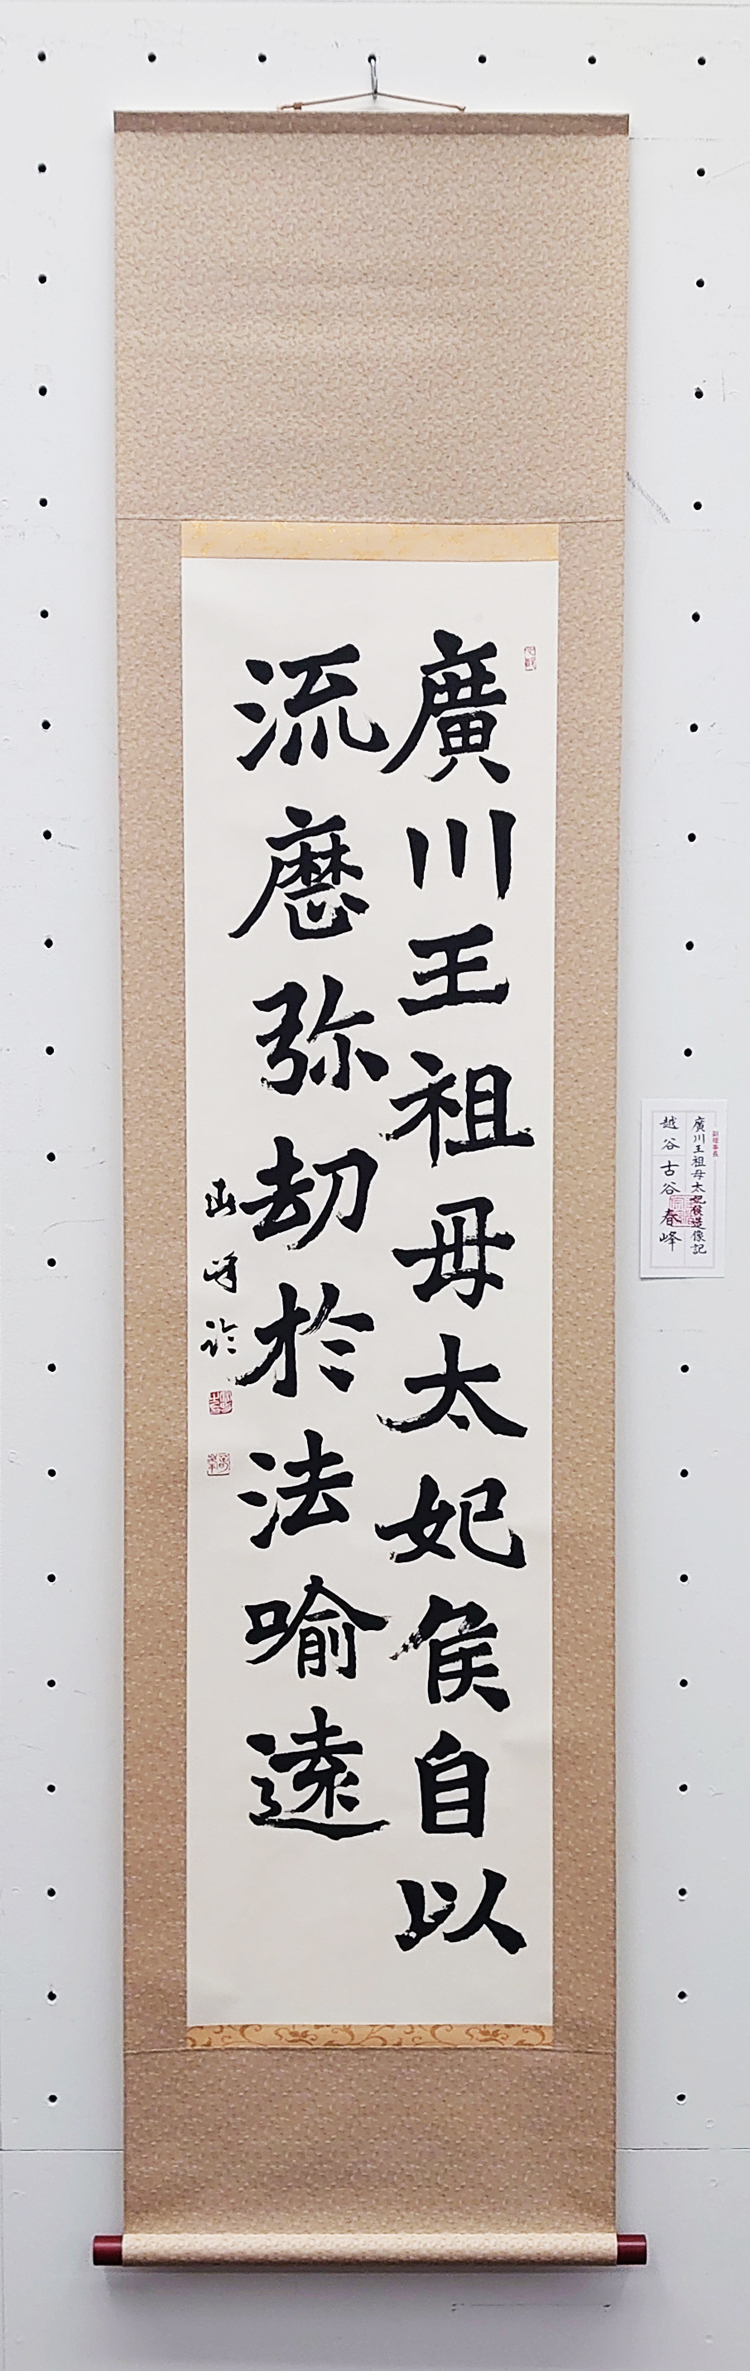 廣川王祖母太妃侯自以
流歷弥劫於法喻遠
副理事長
廣川王祖母太妃侯造像記
越谷 古谷春峰